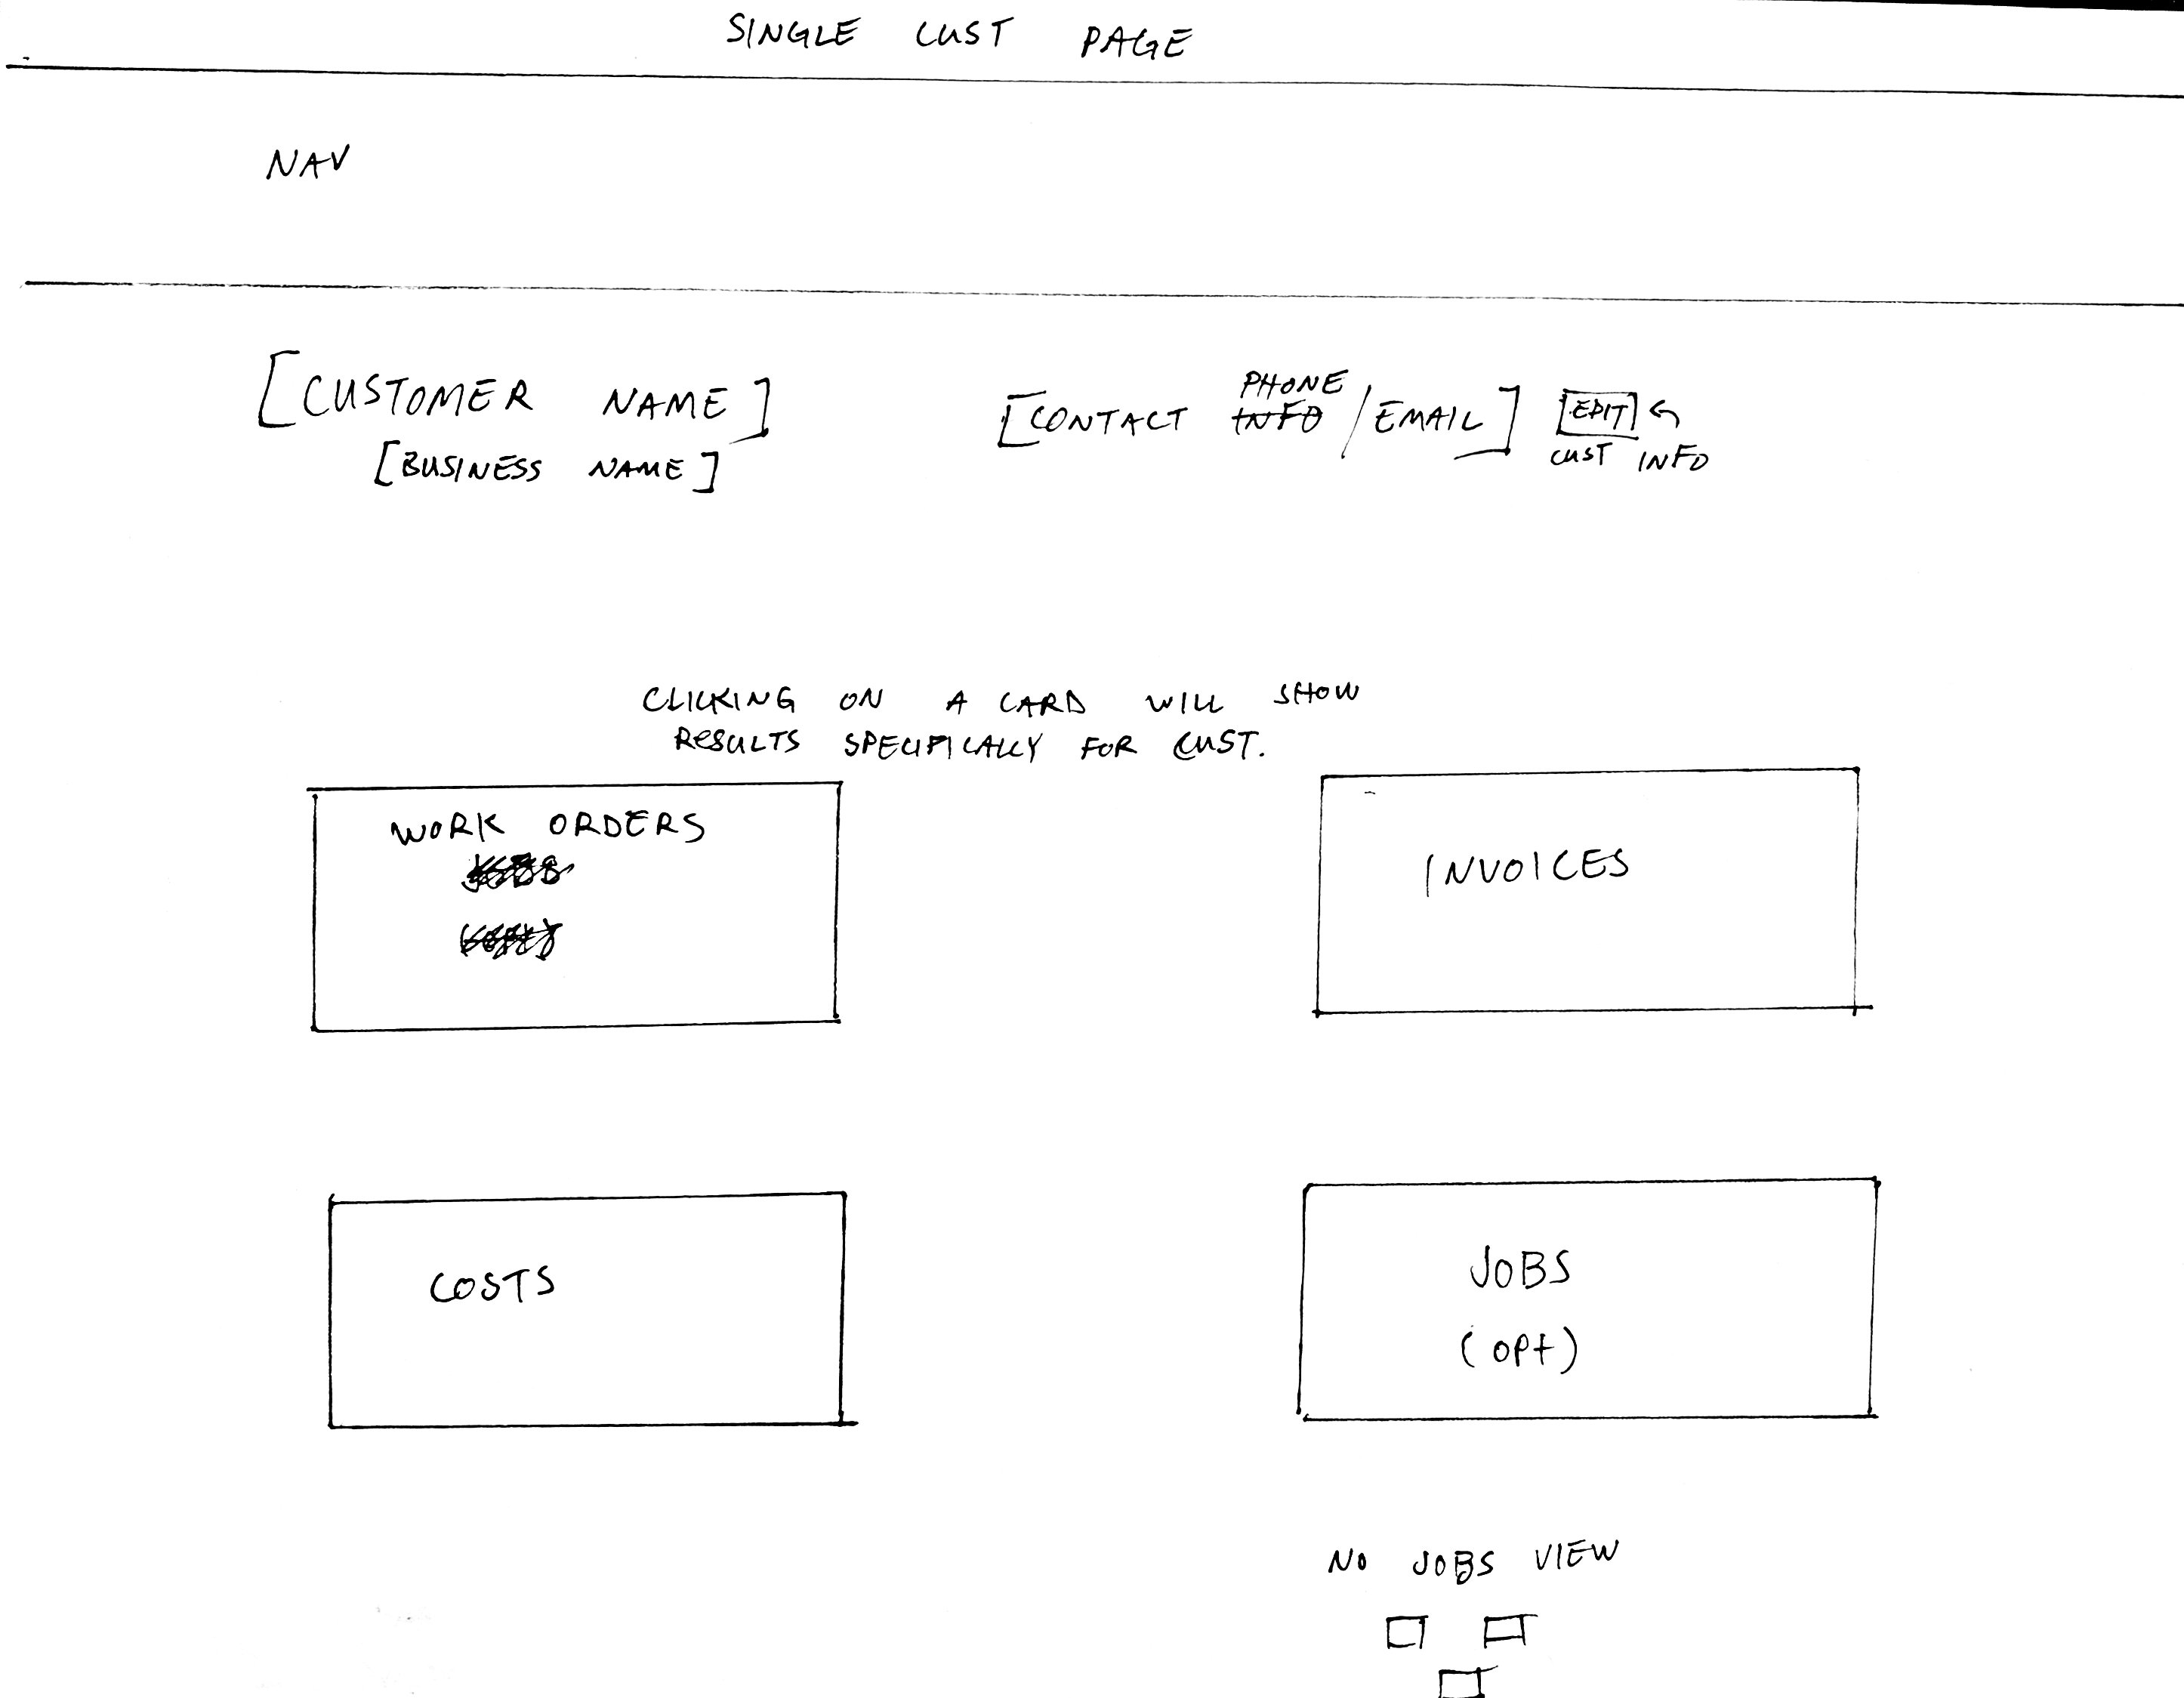 SINGLE CUST PAGE
NAV
[CUSTOMER NAME]
[BUSINESS NAME]
PHONE
[CONTACT INFO / EMAIL] [EDIT]
CUST INFO
CLICKING ON A CARD WILL SHOW
RESULTS SPECIFICALLY FOR CUST.
WORK ORDERS
INVOICES
COSTS
JOBS
(OPT)
NO JOBS VIEW